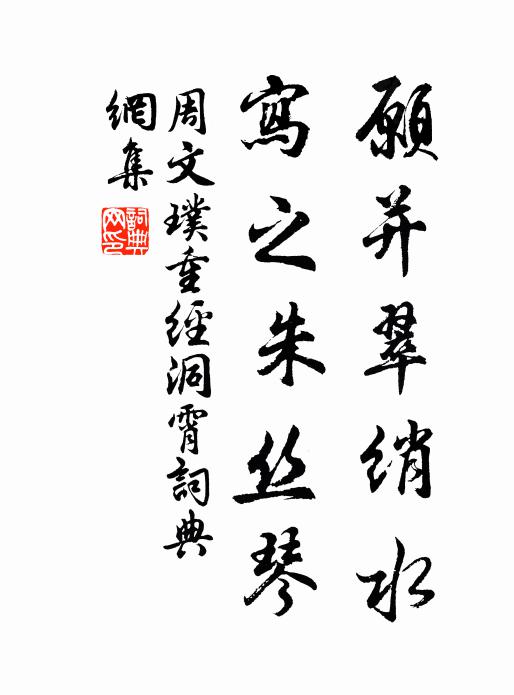 願并翠绡水
寫之朱丝琴
周文璞重經洞霄詞典
網集
詞典網印